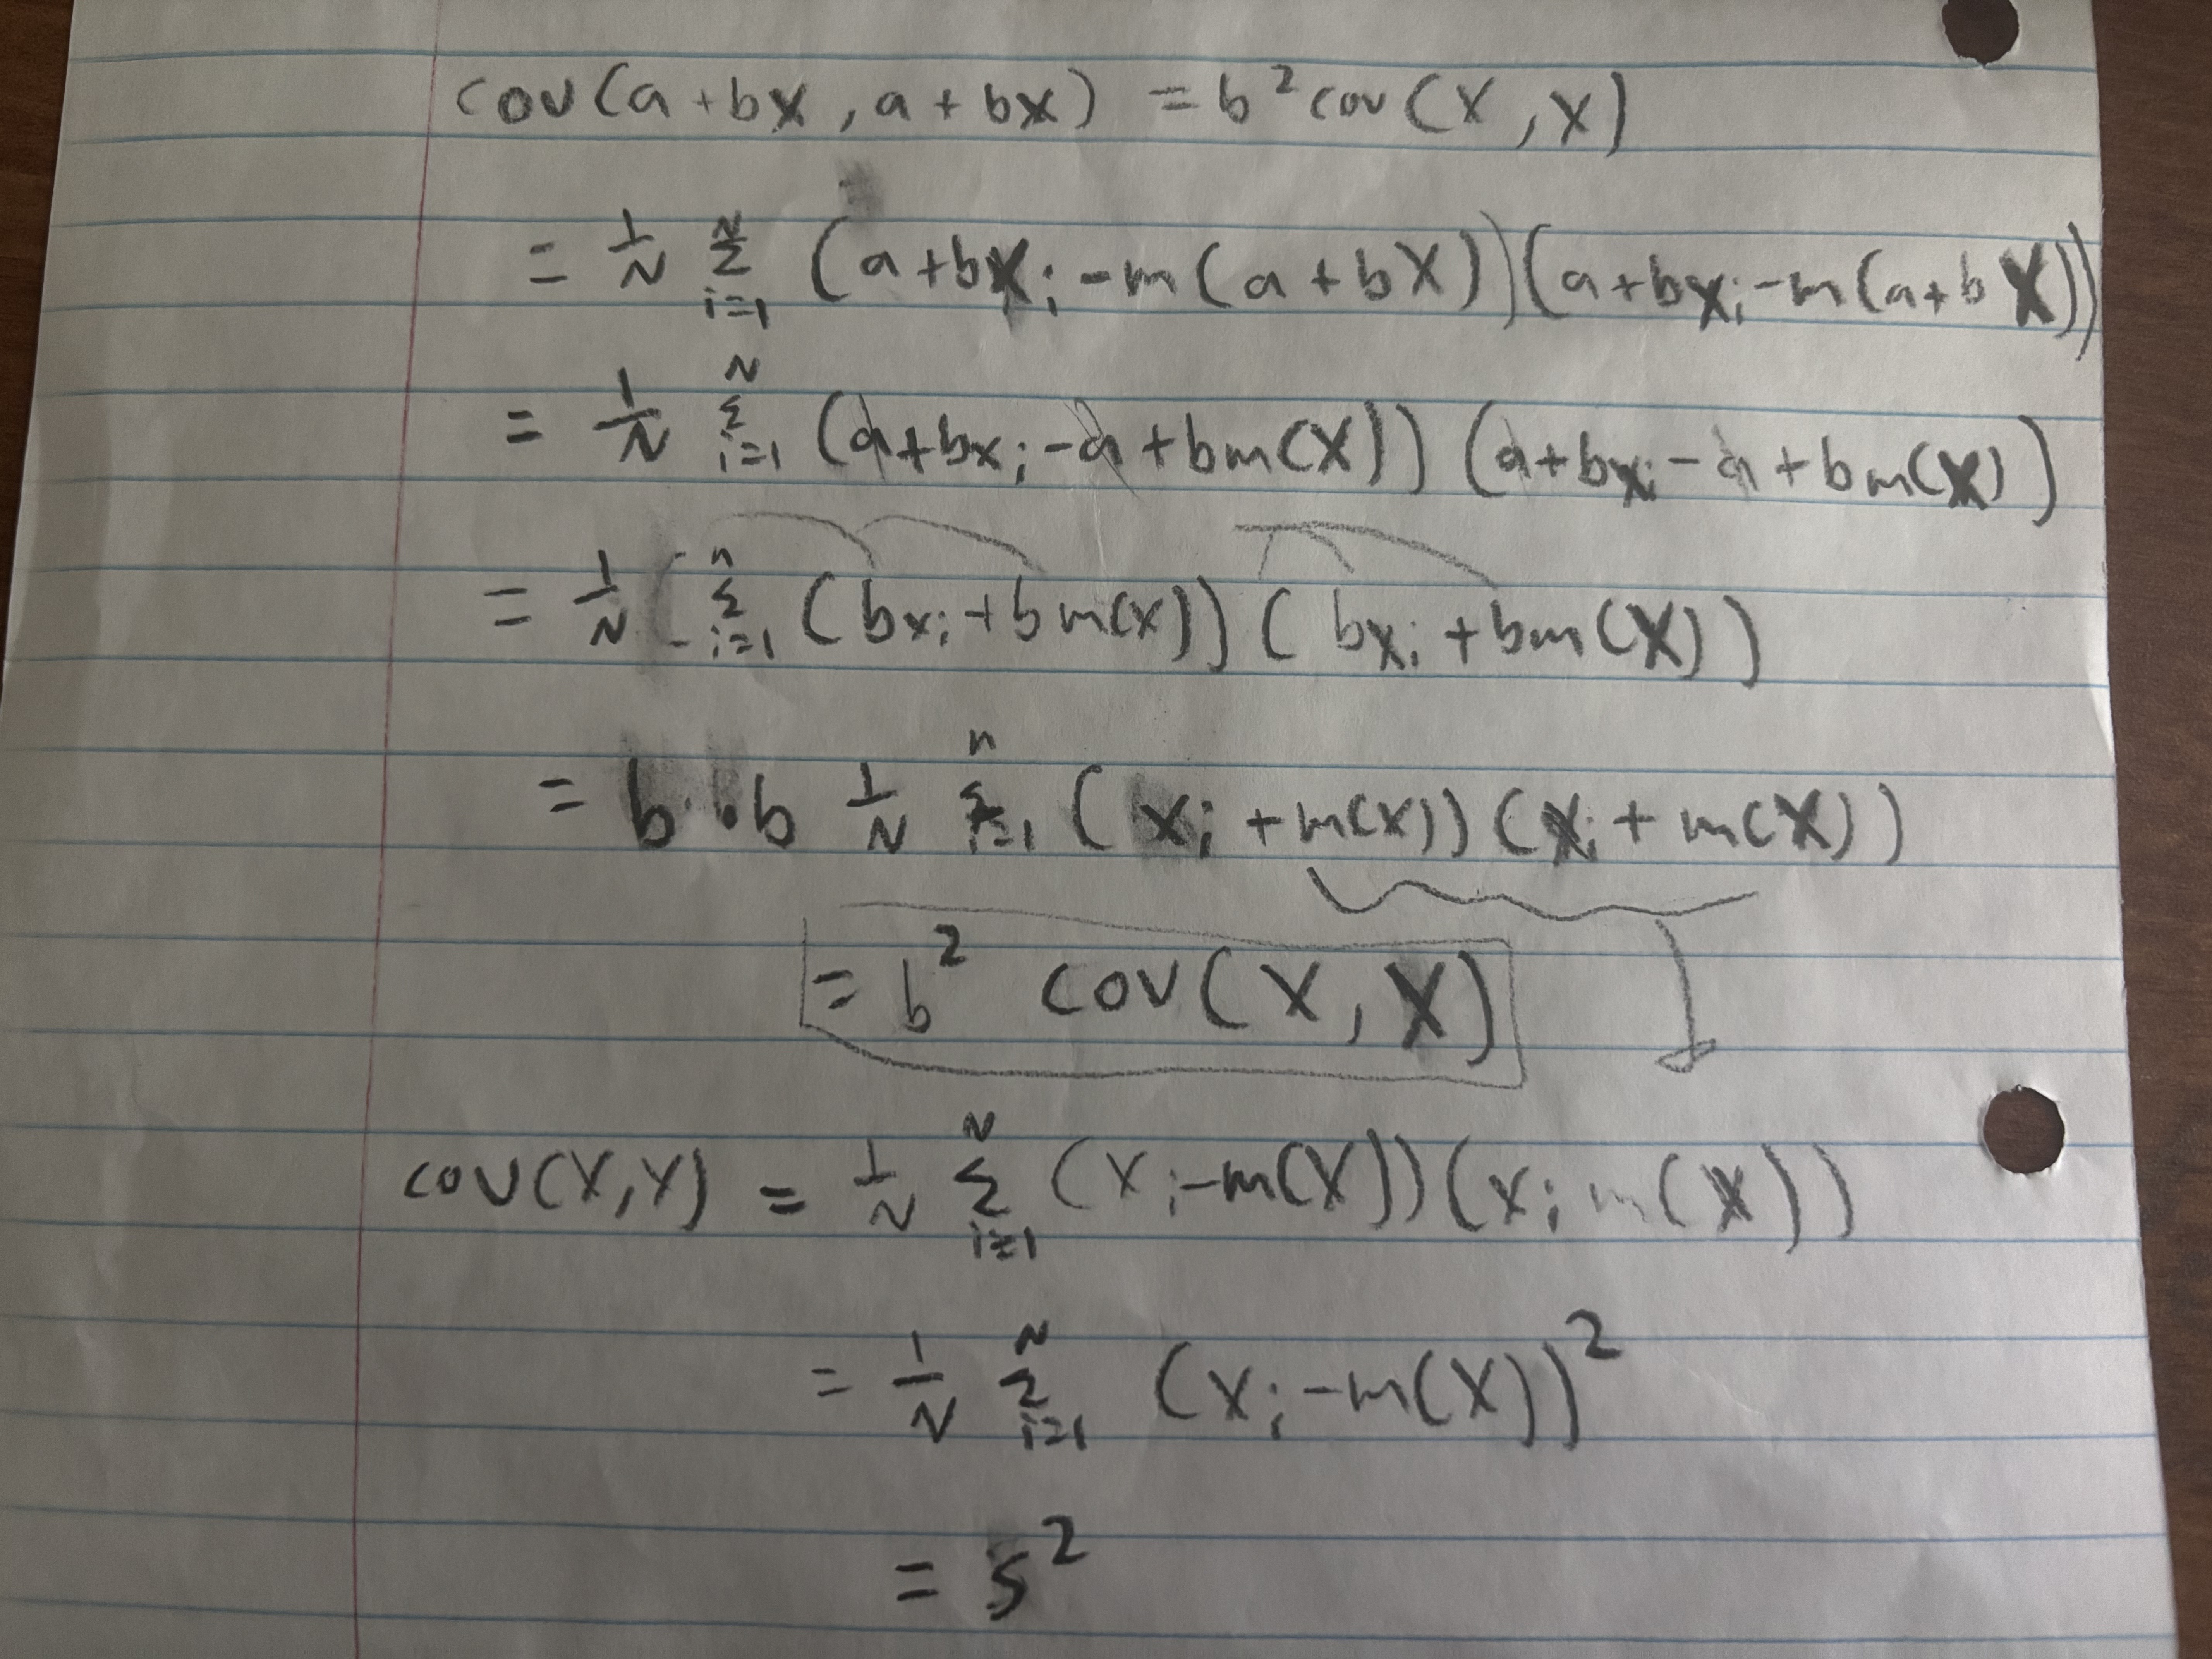 cov(a+bX, a+bX) = b² cov(X, X)
= 1/N Σ_{i=1}^{N} (a+bx_i - m(a+bX))(a+bx_i - m(a+bX))
= 1/N Σ_{i=1}^{N} (a+bx_i - a + bm(X)) (a+bx_i - a + bm(X))
= 1/N Σ_{i=1}^{n} (bx_i + bm(x)) (bx_i + bm(X))
= b · b 1/N Σ_{i=1}^{n} (x_i + m(x)) (x_i + m(X))
= b² cov(X, X)
cov(X, X) = 1/N Σ_{i=1}^{N} (x_i - m(X))(x_i m(X))
= 1/N Σ_{i=1}^{N} (x_i - m(X))²
= s²